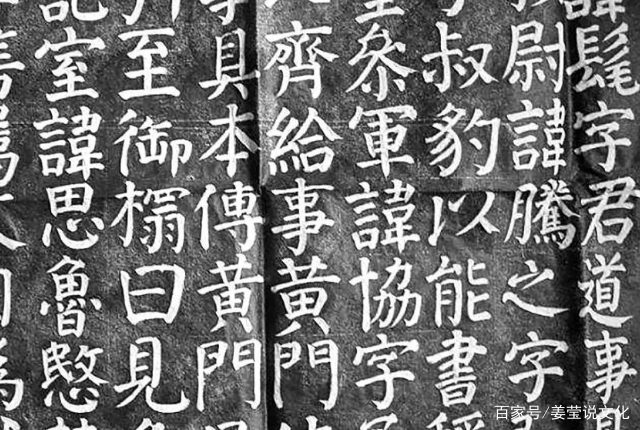 諱髦字君道事具
尉諱騰之字
叔豹以能書稱
叅軍諱協字
齊給事黃門
事具本傳黃門
引至御榻曰見
記室諱思魯慜
百家号/姜莹说文化